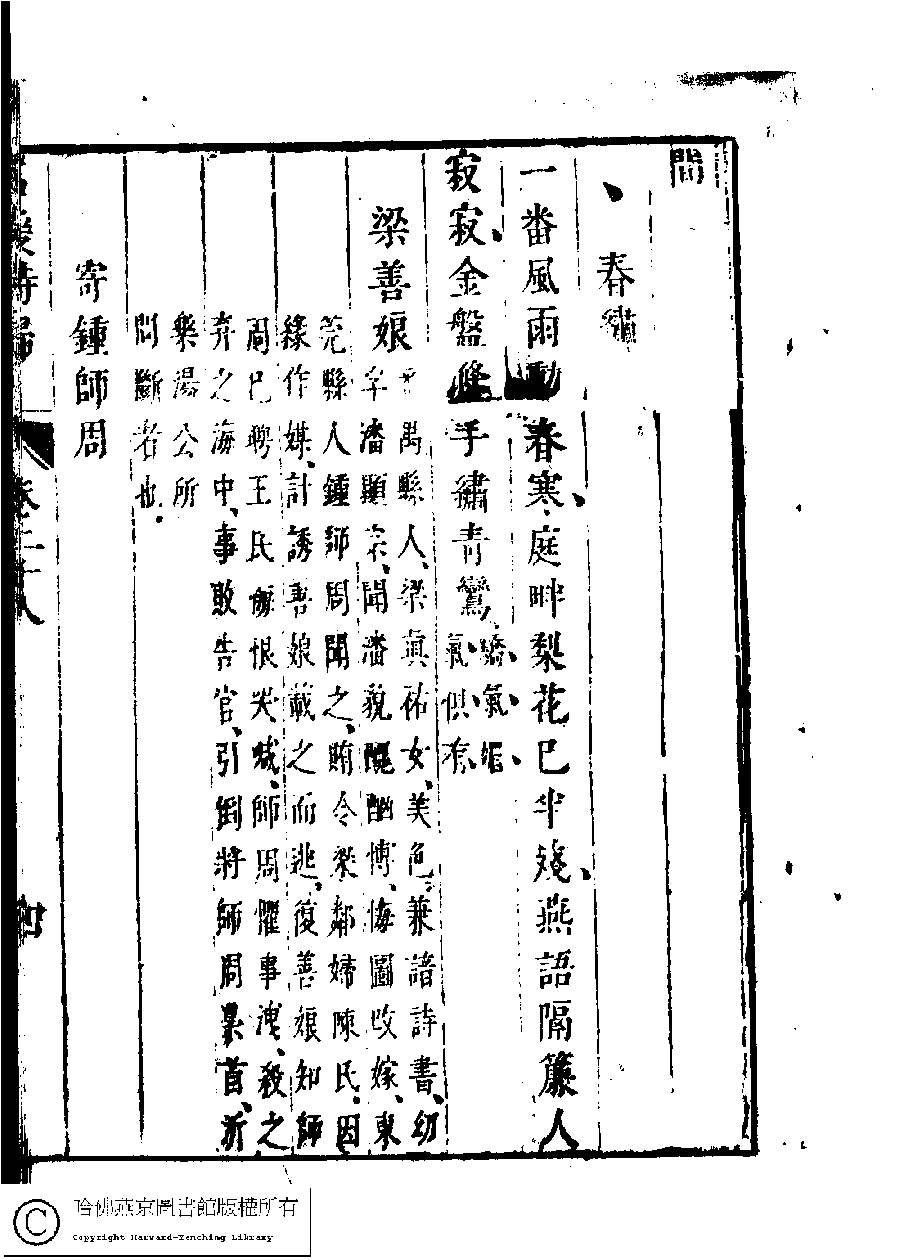 間
春繡
一畨風雨動春寒庭畔梨花已半殘燕語隔簾人
寂寂金盤
手繡青鸞
嬌氣
氣俱有
梁善娘
禺縣人梁眞祐女美色兼諳詩書幼
字潘顯宗聞潘貌醜酗博悔圖改嫁東
莞縣人鍾師周聞之賄令梁鄰婦陳民因
緣作媒計誘善娘載之而逃復善娘知師
周已聘王民 恨 喊師周懼事洩殺之
弃之海中事敗告官引到將師周梟首
樂湯公所
問斷者也
寄鍾師周
名媛詩歸
卷二十八
四
哈佛燕京圖書館版權所有
Copyright Harvard-Yenching Library